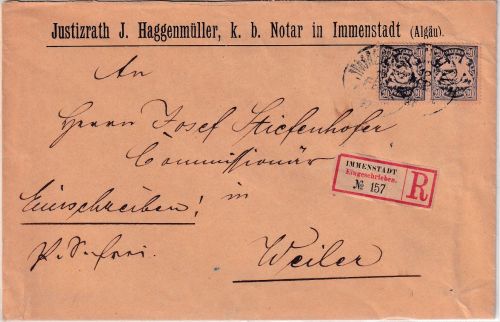 Justizrath J. Haggenmüller, k. b. Notar in Immenstadt (Algäu).
An
Herrn Josef Stiefenhofer
Commissionär
IMMENSTADT
Eingeschrieben.
№ 157
R
Einschreiben! in
Weiler